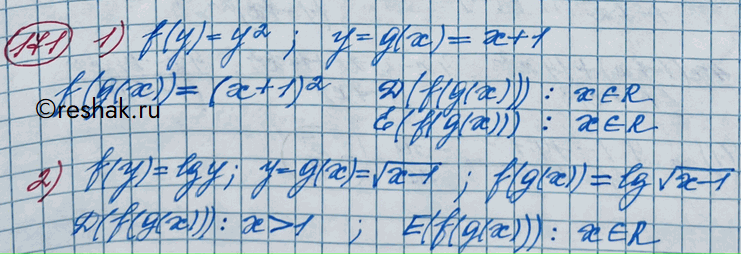 171 1) f(y)=y²; y=g(x)=x+1
f(g(x))=(x+1)² D(f(g(x))): x∈R
©reshak.ru E(f(g(x))): x∈R
2) f(y)=lg y; y=g(x)=√x-1; f(g(x))=lg √x-1
D(f(g(x))): x>1; E(f(g(x))): x∈R